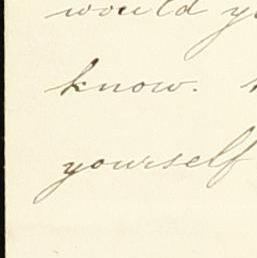 would
know.
yourself